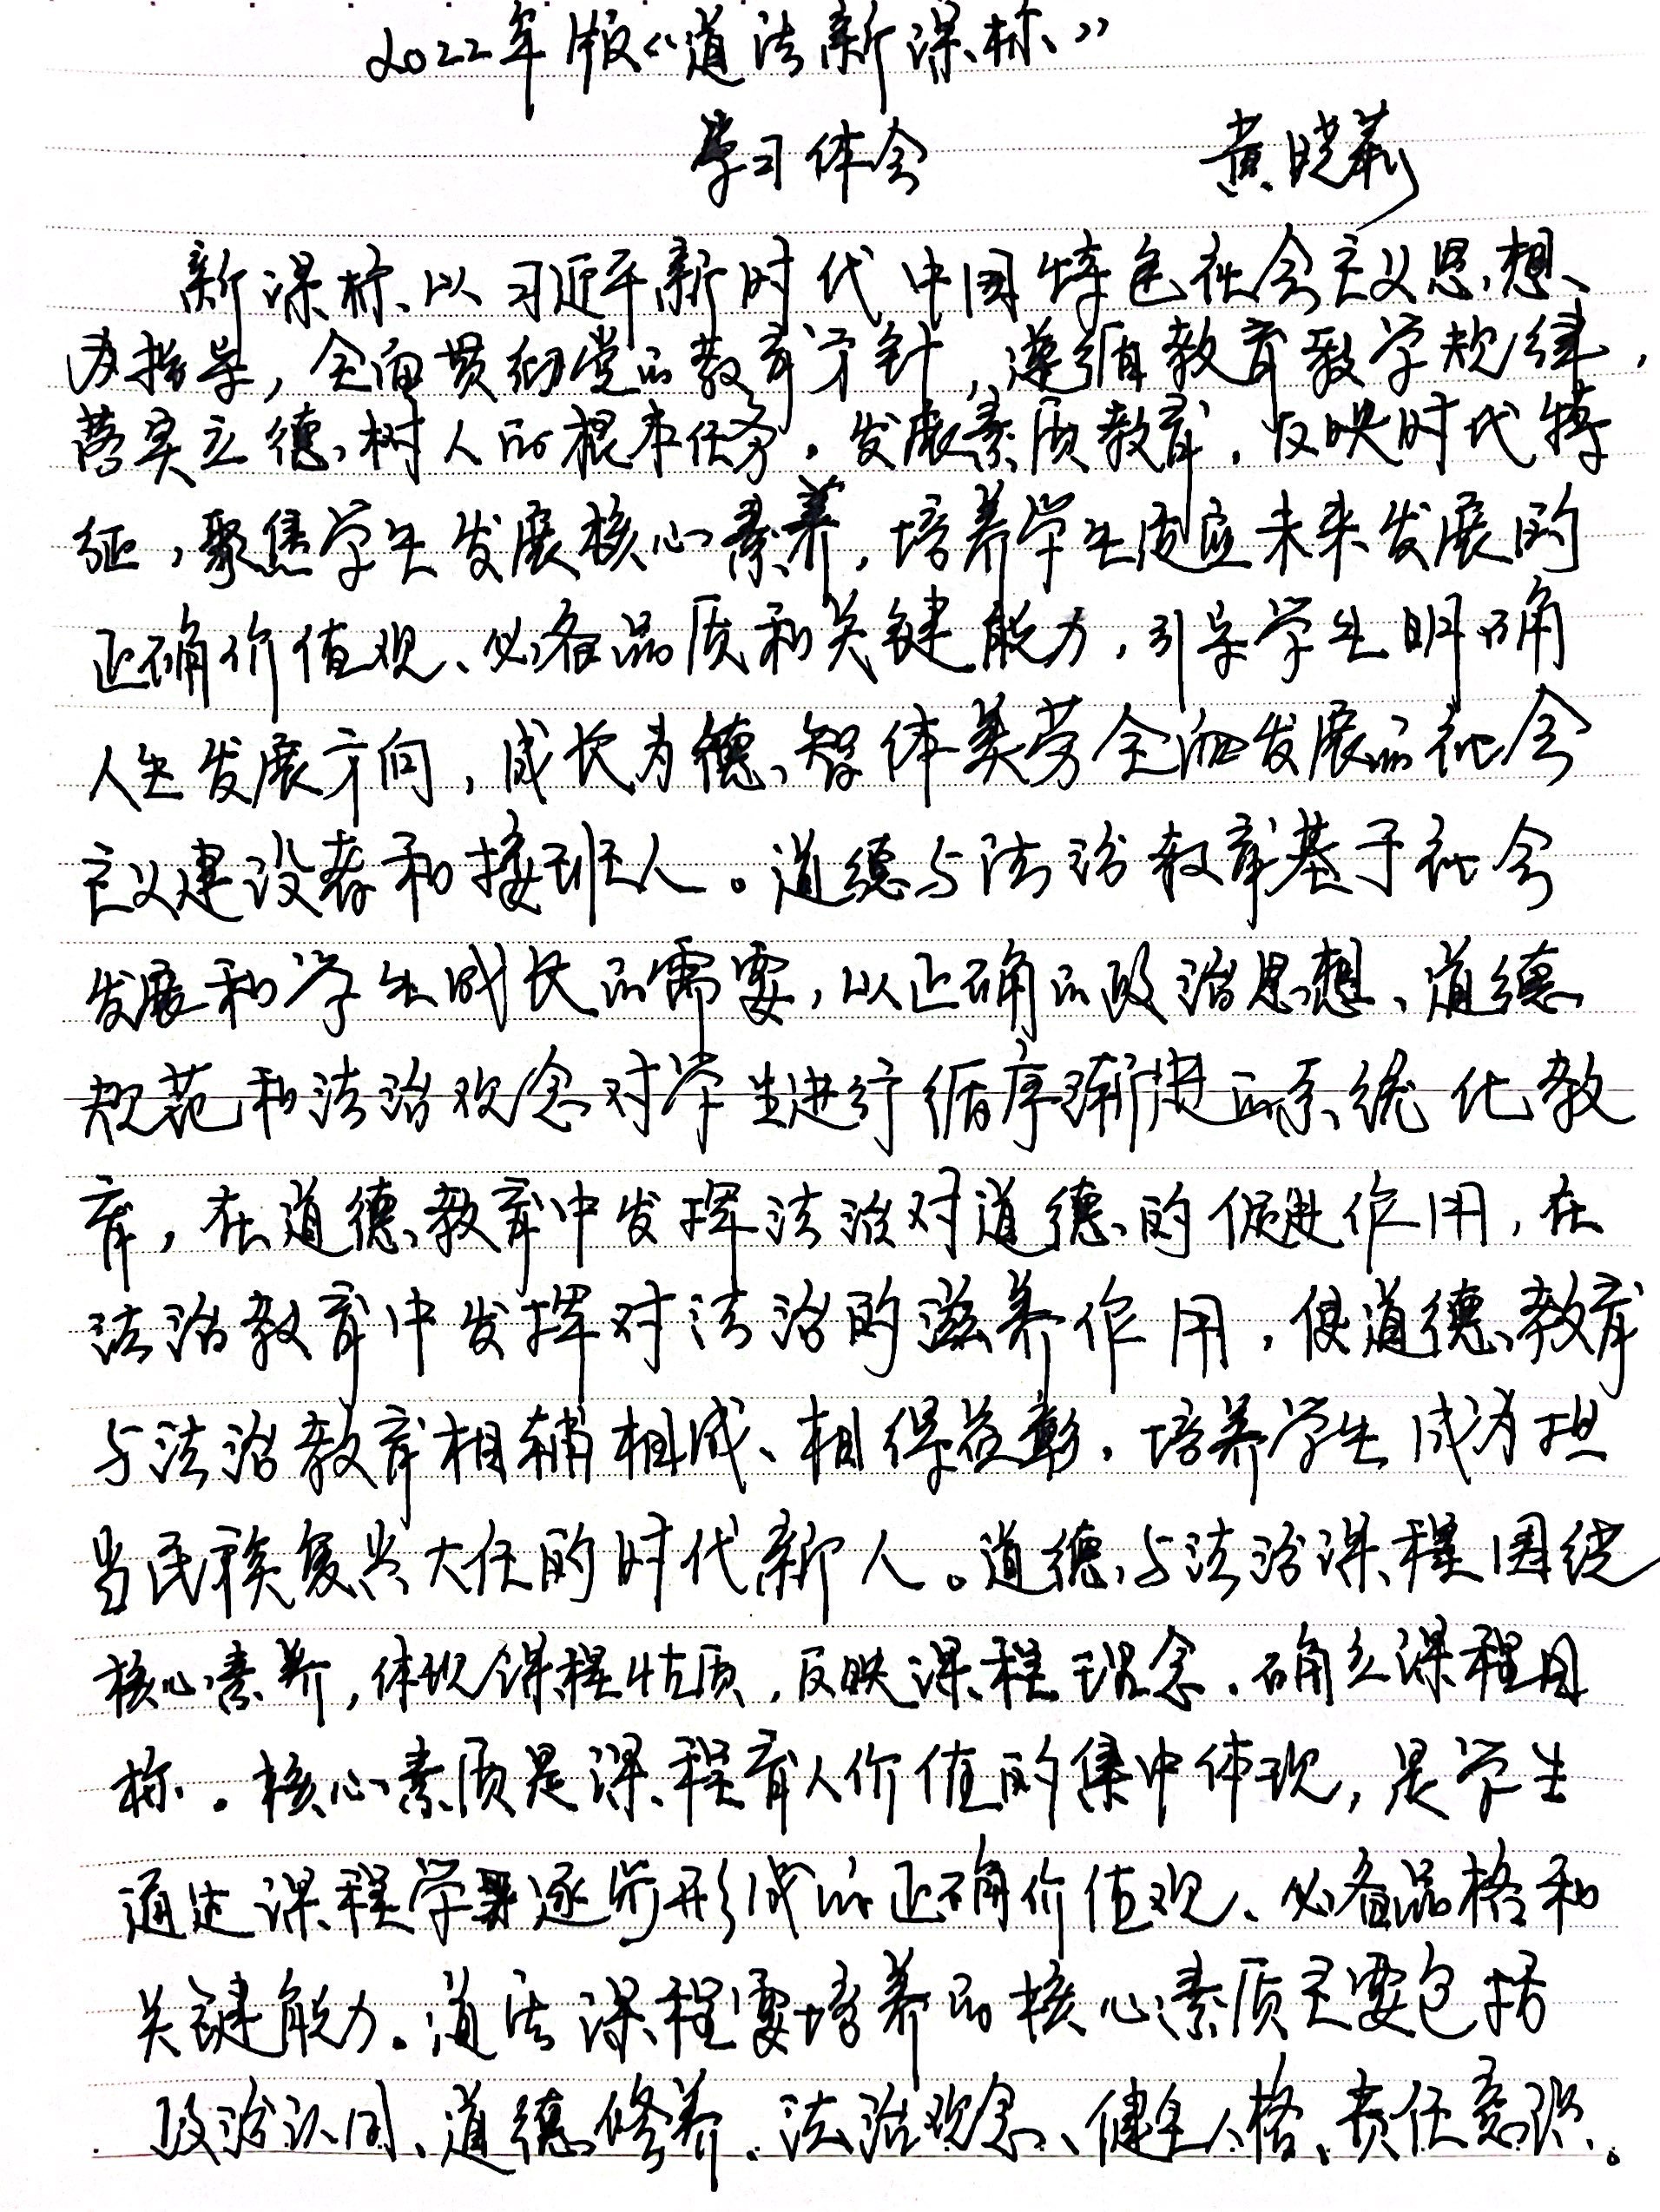 2022年版《道法新课标》
学习体会 黄晓莉
新课标以习近平新时代中国特色社会主义思想
为指导，全面贯彻党的教育方针，遵循教育教学规律，
落实立德树人的根本任务，发展素质教育，反映时代特
征，聚焦学生发展核心素养，培养学生适应未来发展的
正确价值观、必备品质和关键能力，引导学生明确
人生发展方向，成长为德、智体美劳全面发展的社会
主义建设者和接班人。道德与法治教育基于社会
发展和学生成长的需要，以正确的政治思想、道德
规范和法治观念对学生进行循序渐进的系统化教
育，在道德教育中发挥法治对道德的促进作用，在
法治教育中发挥对法治的滋养作用，使道德教育
与法治教育相辅相成、相得益彰，培养学生成为担
当民族复兴大任的时代新人。道德与法治课程围绕
核心素养，体现课程性质，反映课程理念，确立课程目
标。核心素质是课程育人价值的集中体现，是学生
通过课程学习逐步形成的正确价值观、必备品格和
关键能力。道法课程要培养的核心素质主要包括
政治认同、道德修养、法治观念、健全人格、责任意识。